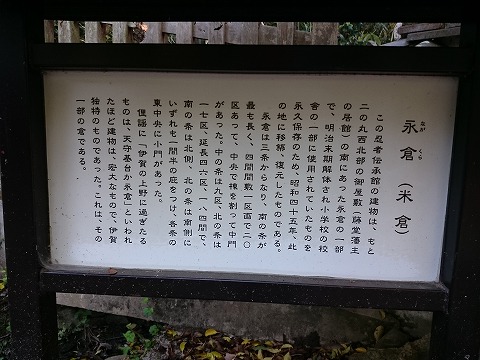 永倉（米倉）
なが くら
この忍者伝承館の建物は、もと
二の丸西北部の御屋敷（藤堂藩主
の居館）の南にあった永倉の一部
で、明治末期解体され小学校の校
舎の一部に使用されていたものを
永久保存のため、昭和四十五年、此
の地に移築、復元したものである。
永倉は三条からなり、南の条が
最も長く、四間間数一区画で二〇
区あって、中央で棟を割って中門
があった。中の条は九区、北の条は
一七区、延長四六区、一八四間で、
南の条は北側、北の条は南側に
いずれも一間半の庇をつけ、各条の
東中央に小門があった。
俚謡に「伊賀の上野に過ぎたる
ものは、天守基台か永倉」といわれ
たほど建物は、宏大なもので、伊賀
独特のものであった。これは、その
一部の倉である。